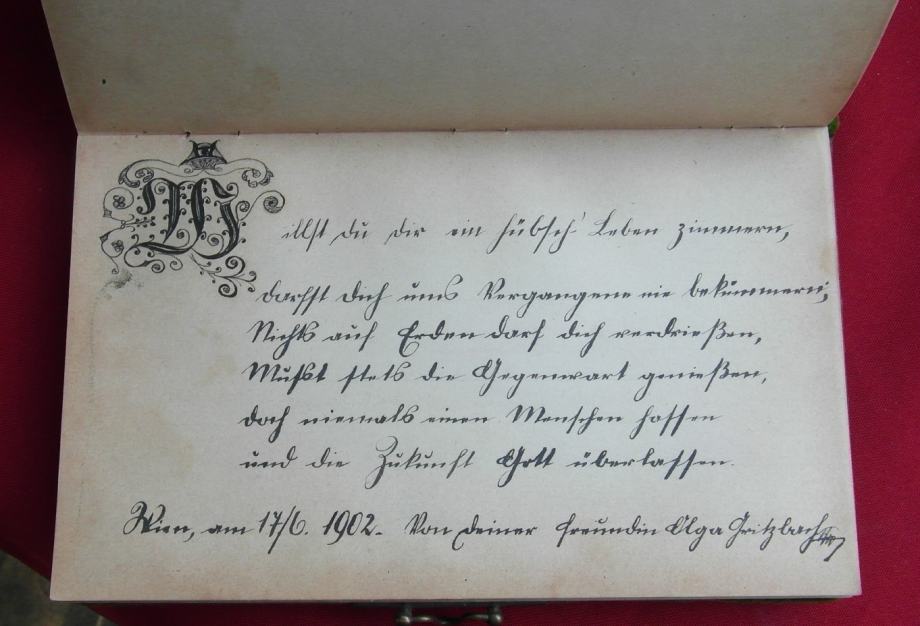 Willst du dir ein hübsch' Leben zimmern,
darfst dich ums Vergangene nie bekümmern;
Nichts auf Erden darf dich verdrießen,
Mußt stets die Gegenwart genießen,
doch niemals einen Menschen hassen
und die Zukunft Gott überlassen.
Wien, am 17/6. 1902. Von deiner Freundin Olga